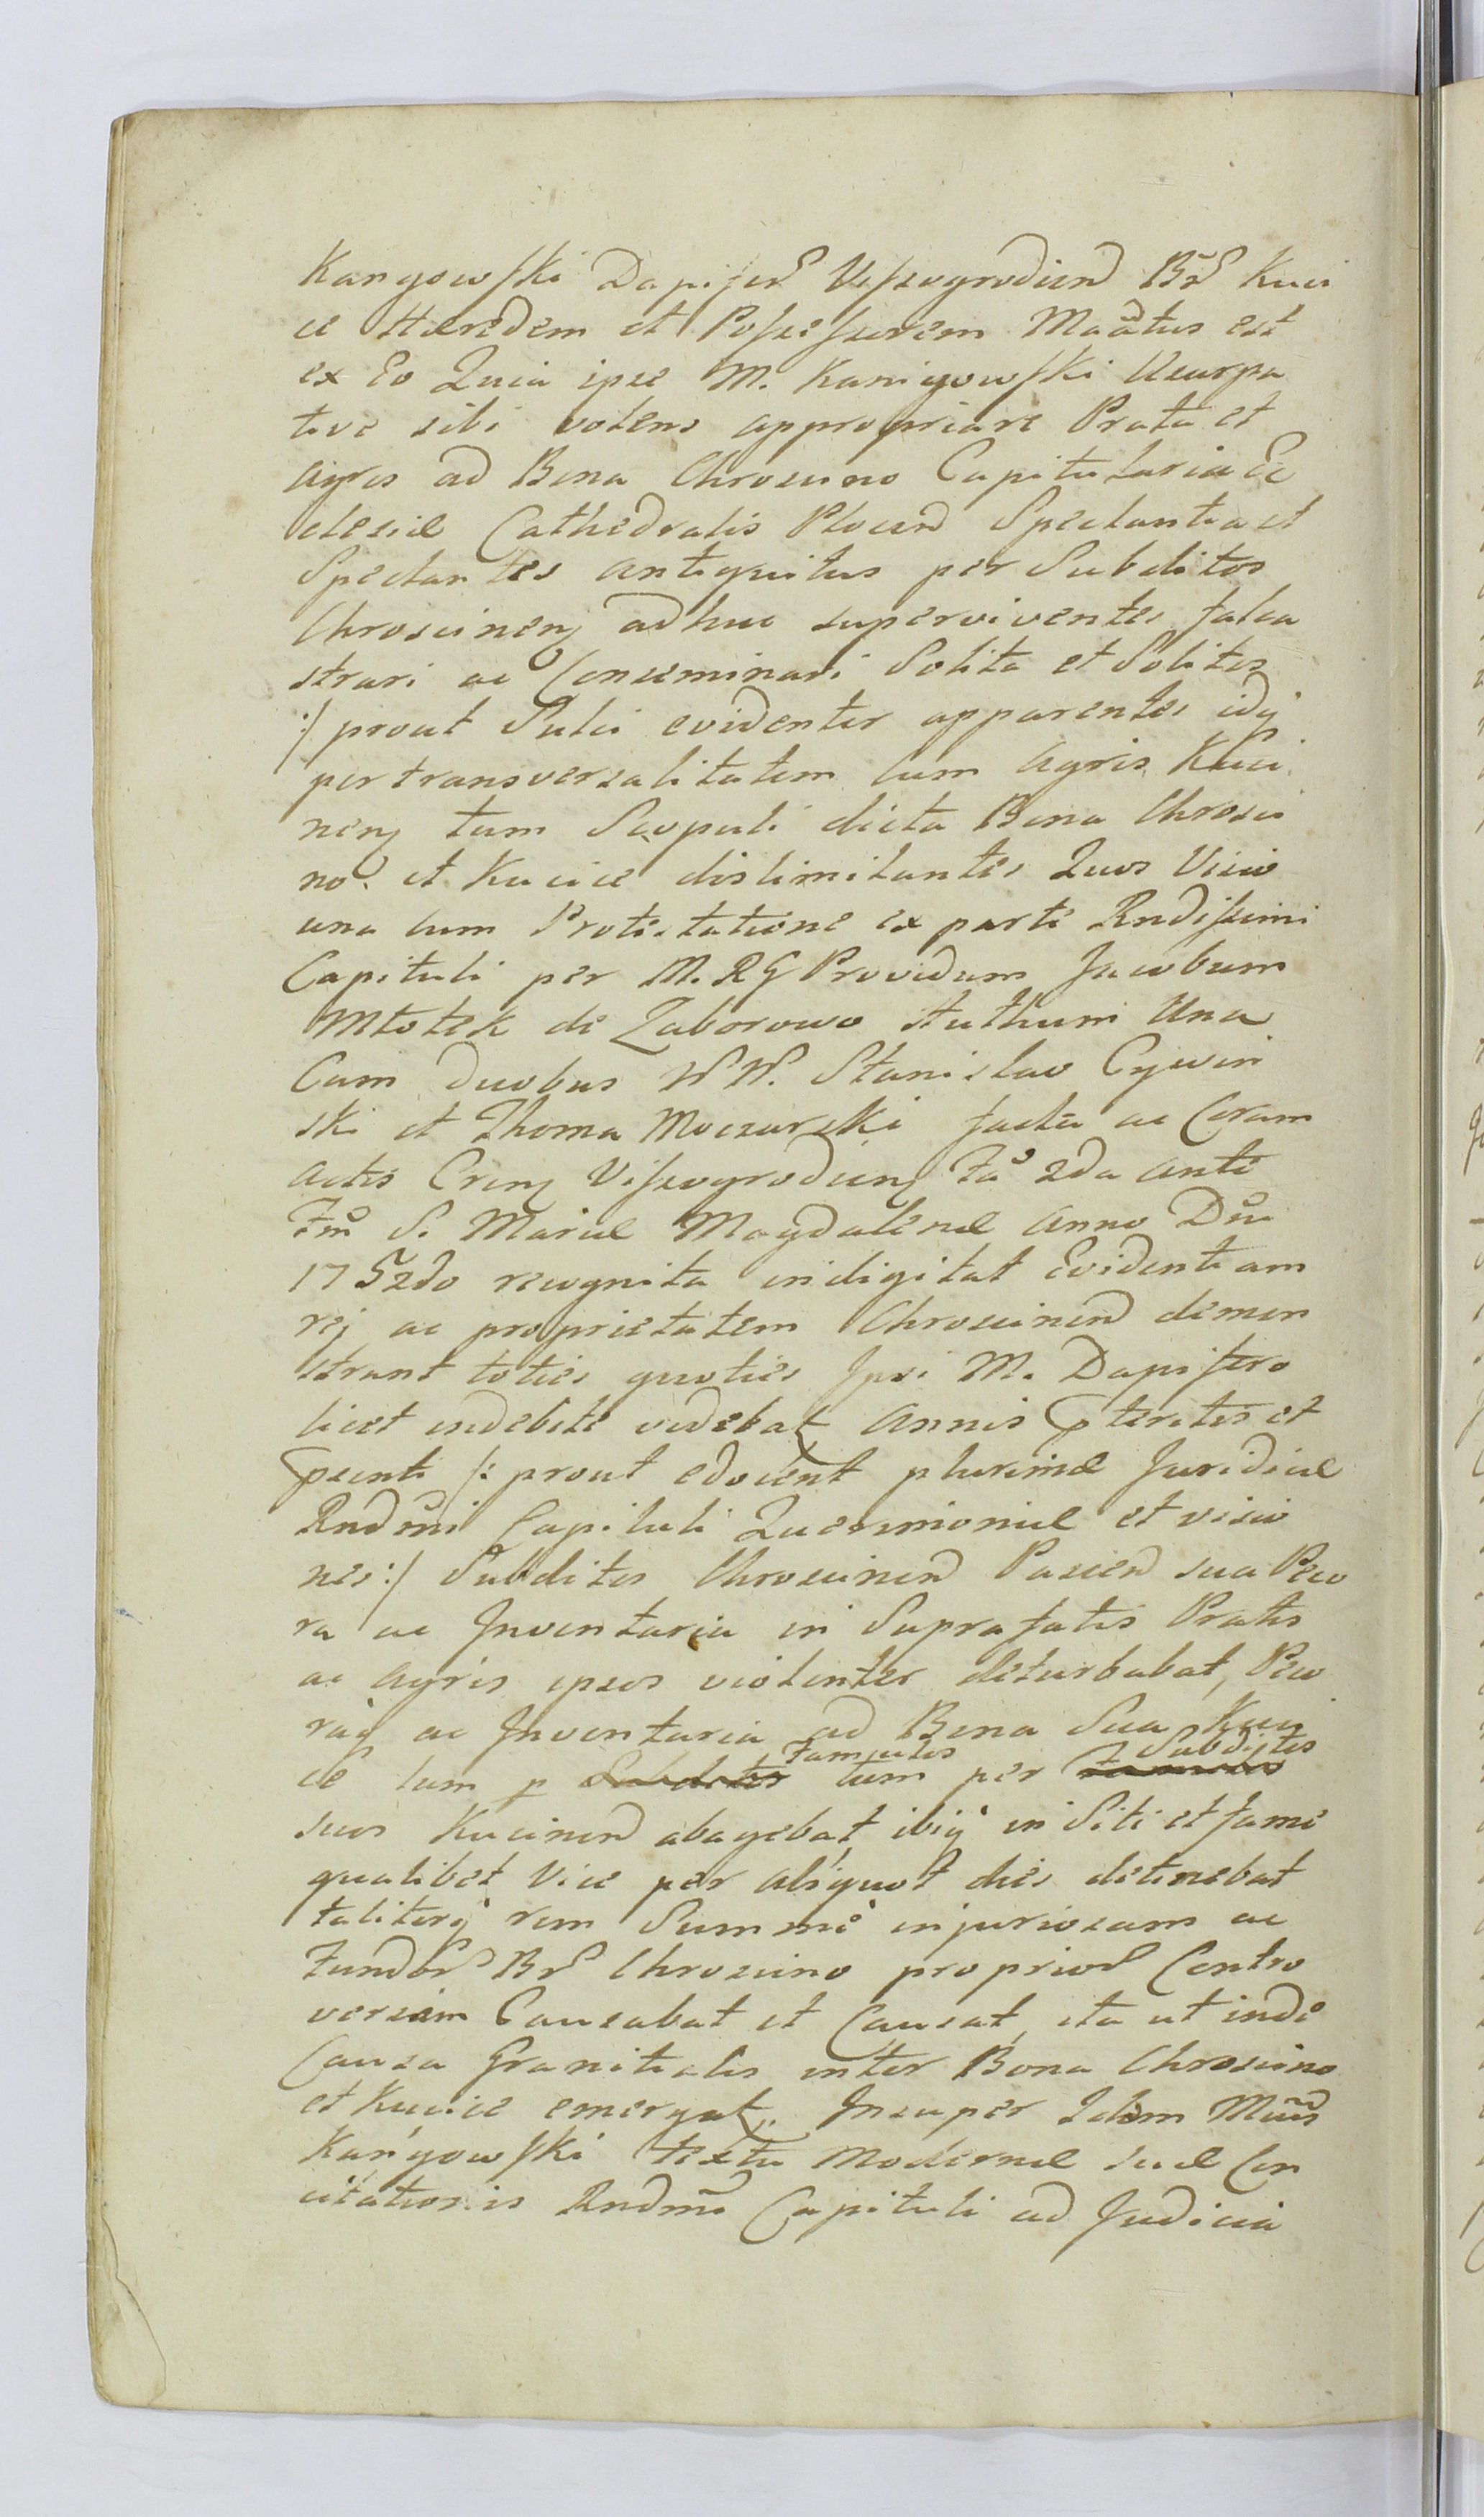 Kanigowski Dapiferũ Viszogrodien Bnr̃ Kuci
ce Hæredem et Possessorem Maãtus est
ex Eo Quia ipse M. Kanigowski Usurpa
tive sibi volens appropriare Prata et
Agros ad Bona Chroscino Capitularia Ec
clesiæ Cathedralis Plocen Spectantia et
Spectantes antiquitus per Subditos
Chroscinen adhuc superviventes falca
strari ac Conseminari Solita et Solitos
:/ prout Sulci evidenter apparentes idq̃
per transversalitatem cum Agris Kuci
nen tum Scopuli dicta Bona Chrosci
no et Kucice dislimitantes Quos Visio
una cum Protestatione ex parte Rndissimi
Capituli per M. RG Providum Jacobum
Młotek de Zaborowo Authum Una
Cum duobus WW. Stanislao Cywin
ski et Thoma Moczarski facta ac Coram
Actis Cren Viszogrodien Fa 2da ante
Fm S. Mariæ Magdalenæ Anno Dni
1752do recognita indigitat Evidentiam
rej ac proprietatem Chroscinen demon
strant toties quoties Ipsi M. Dapifero
licet indebite videbat Annis pteritis et
psenti /: prout edocent plurimæ Juridicæ
Rndmi Capituli Querimoniæ et visio
nes :/ Subditos Chroscinen Pascen sua Peco
ra ac Inventaria in Suprafatis Pratis
ac Agris ipsos violenter deturbabat, Peco
raq̃ ac Inventaria ad Bona Sua Kuci
ce tum p Subditos Famulos tum per Famulos Subditos
suos Kucinen abagebat, ibiq̃ in Siti et fame
qualibet Vice per aliquot dies detinebat
taliterq̃ rem Summe injuriosam ac
Fundor Bnr Chroscino proprior Contro
versiam Causabat et Causat, ita ut inde
Causa Granitialis inter Bona Chroscino
et Kucice emergat,, Insuper Idem Mãus
Kanigowski textu modernæ suæ Con
citationis Rndmi Capituli ad Judicia